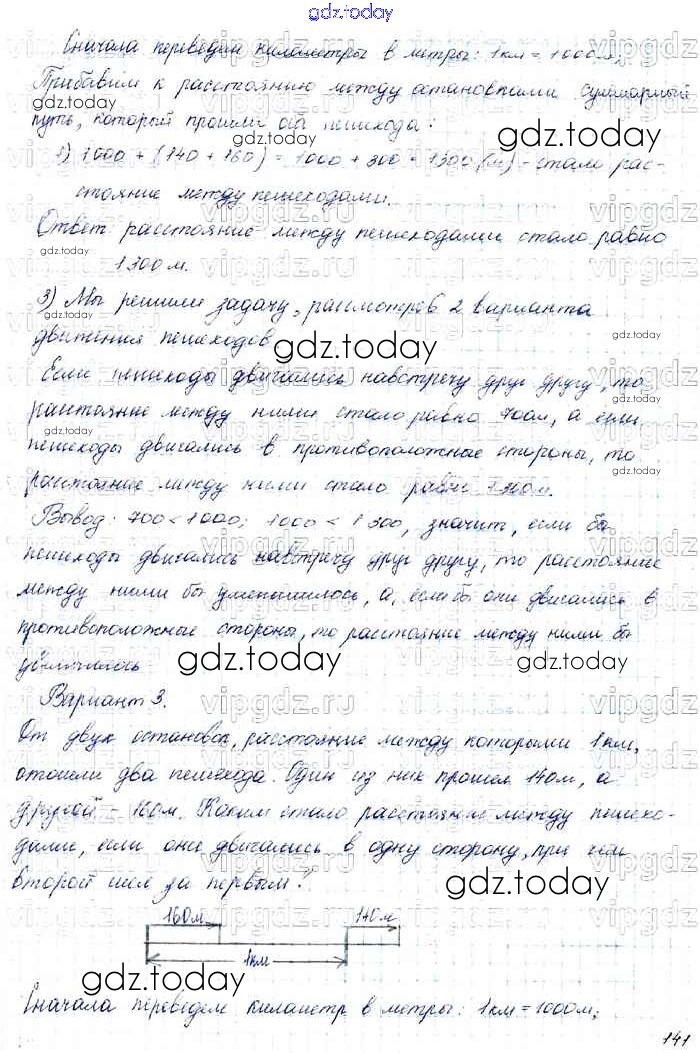 gdz.today
Сначала переведем километры в метры: 1км = 1000м;
Прибавим к расстоянию между остановками суммарный
путь, который прошли оба пешехода:
1) 1000 + (140 + 160) = 1000 + 300 = 1300 (м) - стало рас-
стояние между пешеходами.
Ответ: расстояние между пешеходами стало равно
1300 м.
3) Мы решили задачу, рассмотрев 2 варианта
движения пешеходов
Если пешеходы двигались навстречу друг другу, то
расстояние между ними стало равно 700м, а если
пешеходы двигались в противоположные стороны, то
расстояние между ними стало равно 1300м.
Вывод: 700 < 1000; 1000 < 1300, значит, если бы
пешеходы двигались навстречу друг другу, то расстояние
между ними бы уменьшилось, а, если бы они двигались в
противоположные стороны, то расстояние между ними бы
увеличилось
Вариант 3.
От двух остановок, расстояние между которыми 1км,
отошли два пешехода. Один из них прошел 140м, а
другой - 160м. Каким стало расстояние между пешехо-
дами, если они двигались в одну сторону, при чем
второй шел за первым?
160м 140м
1км
Сначала переведем километр в метры: 1км = 1000м;
141